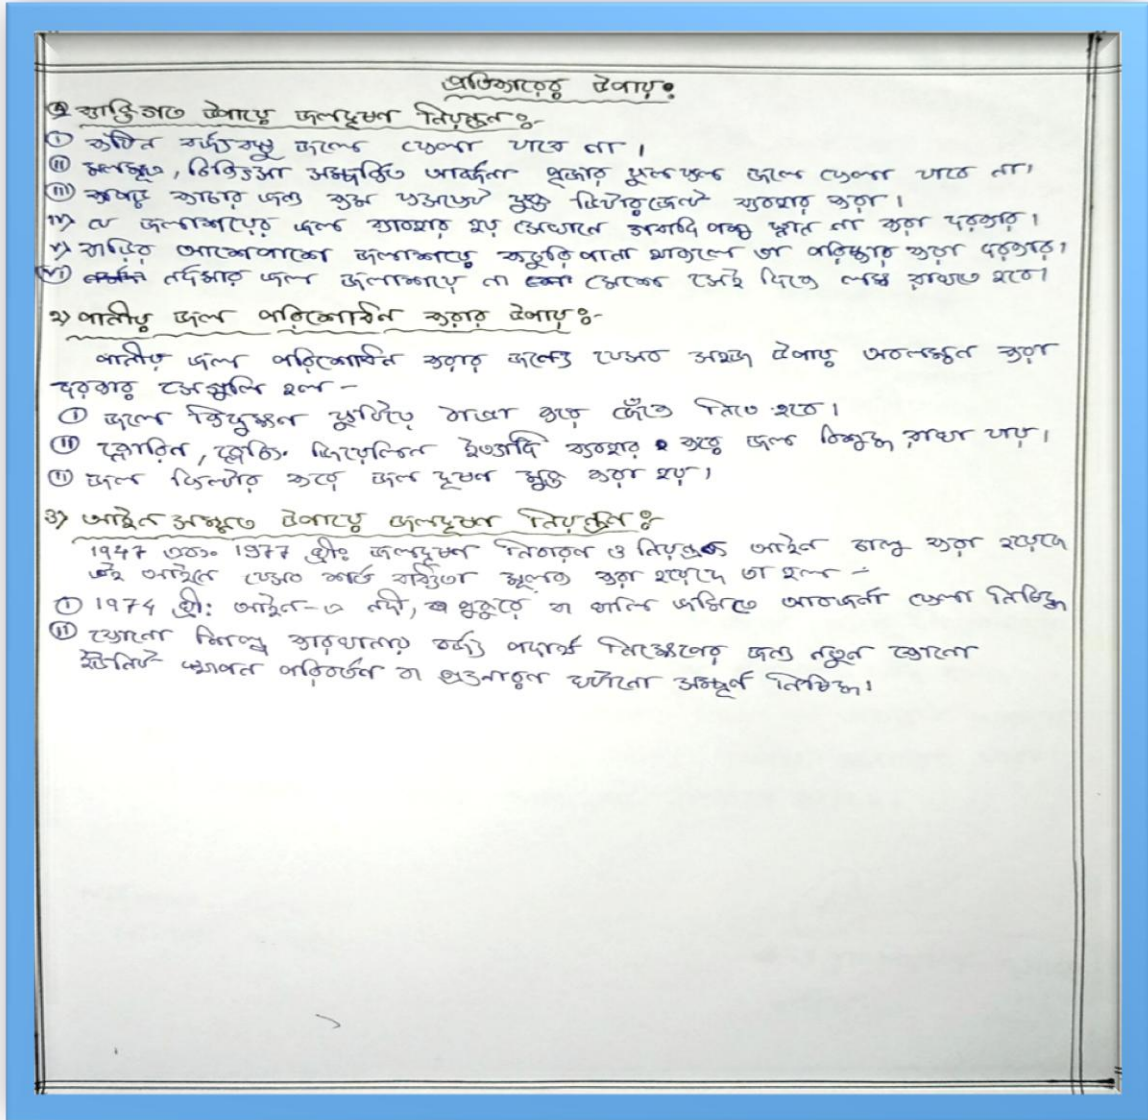 প্রতিকারের উপায়ঃ
১) ব্যক্তিগত উপায়ে জলদূষণ নিয়ন্ত্রনঃ-
(i) কঠিন বর্জ্যবস্তু জলে ফেলা যাবে না।
(ii) মলমূত্র, চিকিৎসা সম্পর্কিত আবর্জনা পূজার ফুলফল জলে ফেলা যাবে না।
(iii) কাপড় কাচার জন্য কম ফসফেট যুক্ত ডিটারজেন্ট ব্যবহার করা।
iv) যে জলাশয়ের জল ব্যবহার হয় সেখানে গবাদি পশু স্নান না করা দরকার।
v) বাড়ির আশেপাশে জলাশয়ে কচুরিপানা থাকলে তা পরিষ্কার করা দরকার।
(vi) নর্দমার জল জলাশয়ে না মেশে সেই দিকে লক্ষ রাখতে হবে।
২) পানীয় জল পরিশোধন করার উপায়ঃ-
পানীয় জল পরিশোধন করার জন্যে যেসব সহজ উপায় অবলম্বন করা
দরকার সেগুলি হল -
(i) জলে কিছুক্ষন ফুটিয়ে ঠান্ডা করে ছেঁকে নিতে হবে।
(ii) ক্লোরিন, ব্লিচিং, জিয়োলিন ইত্যাদি ব্যবহার করে জল বিশুদ্ধ রাখা যায়।
(iii) জল ফিল্টার করে জল দূষণ মুক্ত করা হয়।
৩) আইন সম্মত উপায়ে জলদূষণ নিয়ন্ত্রনঃ
1947 এবং 1977 খ্রীঃ জলদূষণ নিবারণ ও নিয়ন্ত্রণ আইন চালু করা হয়েছে
এই আইনে যেসব শর্ত মূলক করা হয়েছে তা হল -
(i) 1974 খ্রী: আইন-এ নদী, পুকুরে বা খালি জমিতে আবর্জনা ফেলা নিষিদ্ধ
(ii) কোনো শিল্প কারখানায় বর্জ্য পদার্থ নিক্ষেপের জন্য নতুন কোনো
ইউনিট স্থাপন পরিবর্তন বা ঘটানো সম্পূর্ণ নিষিদ্ধ।